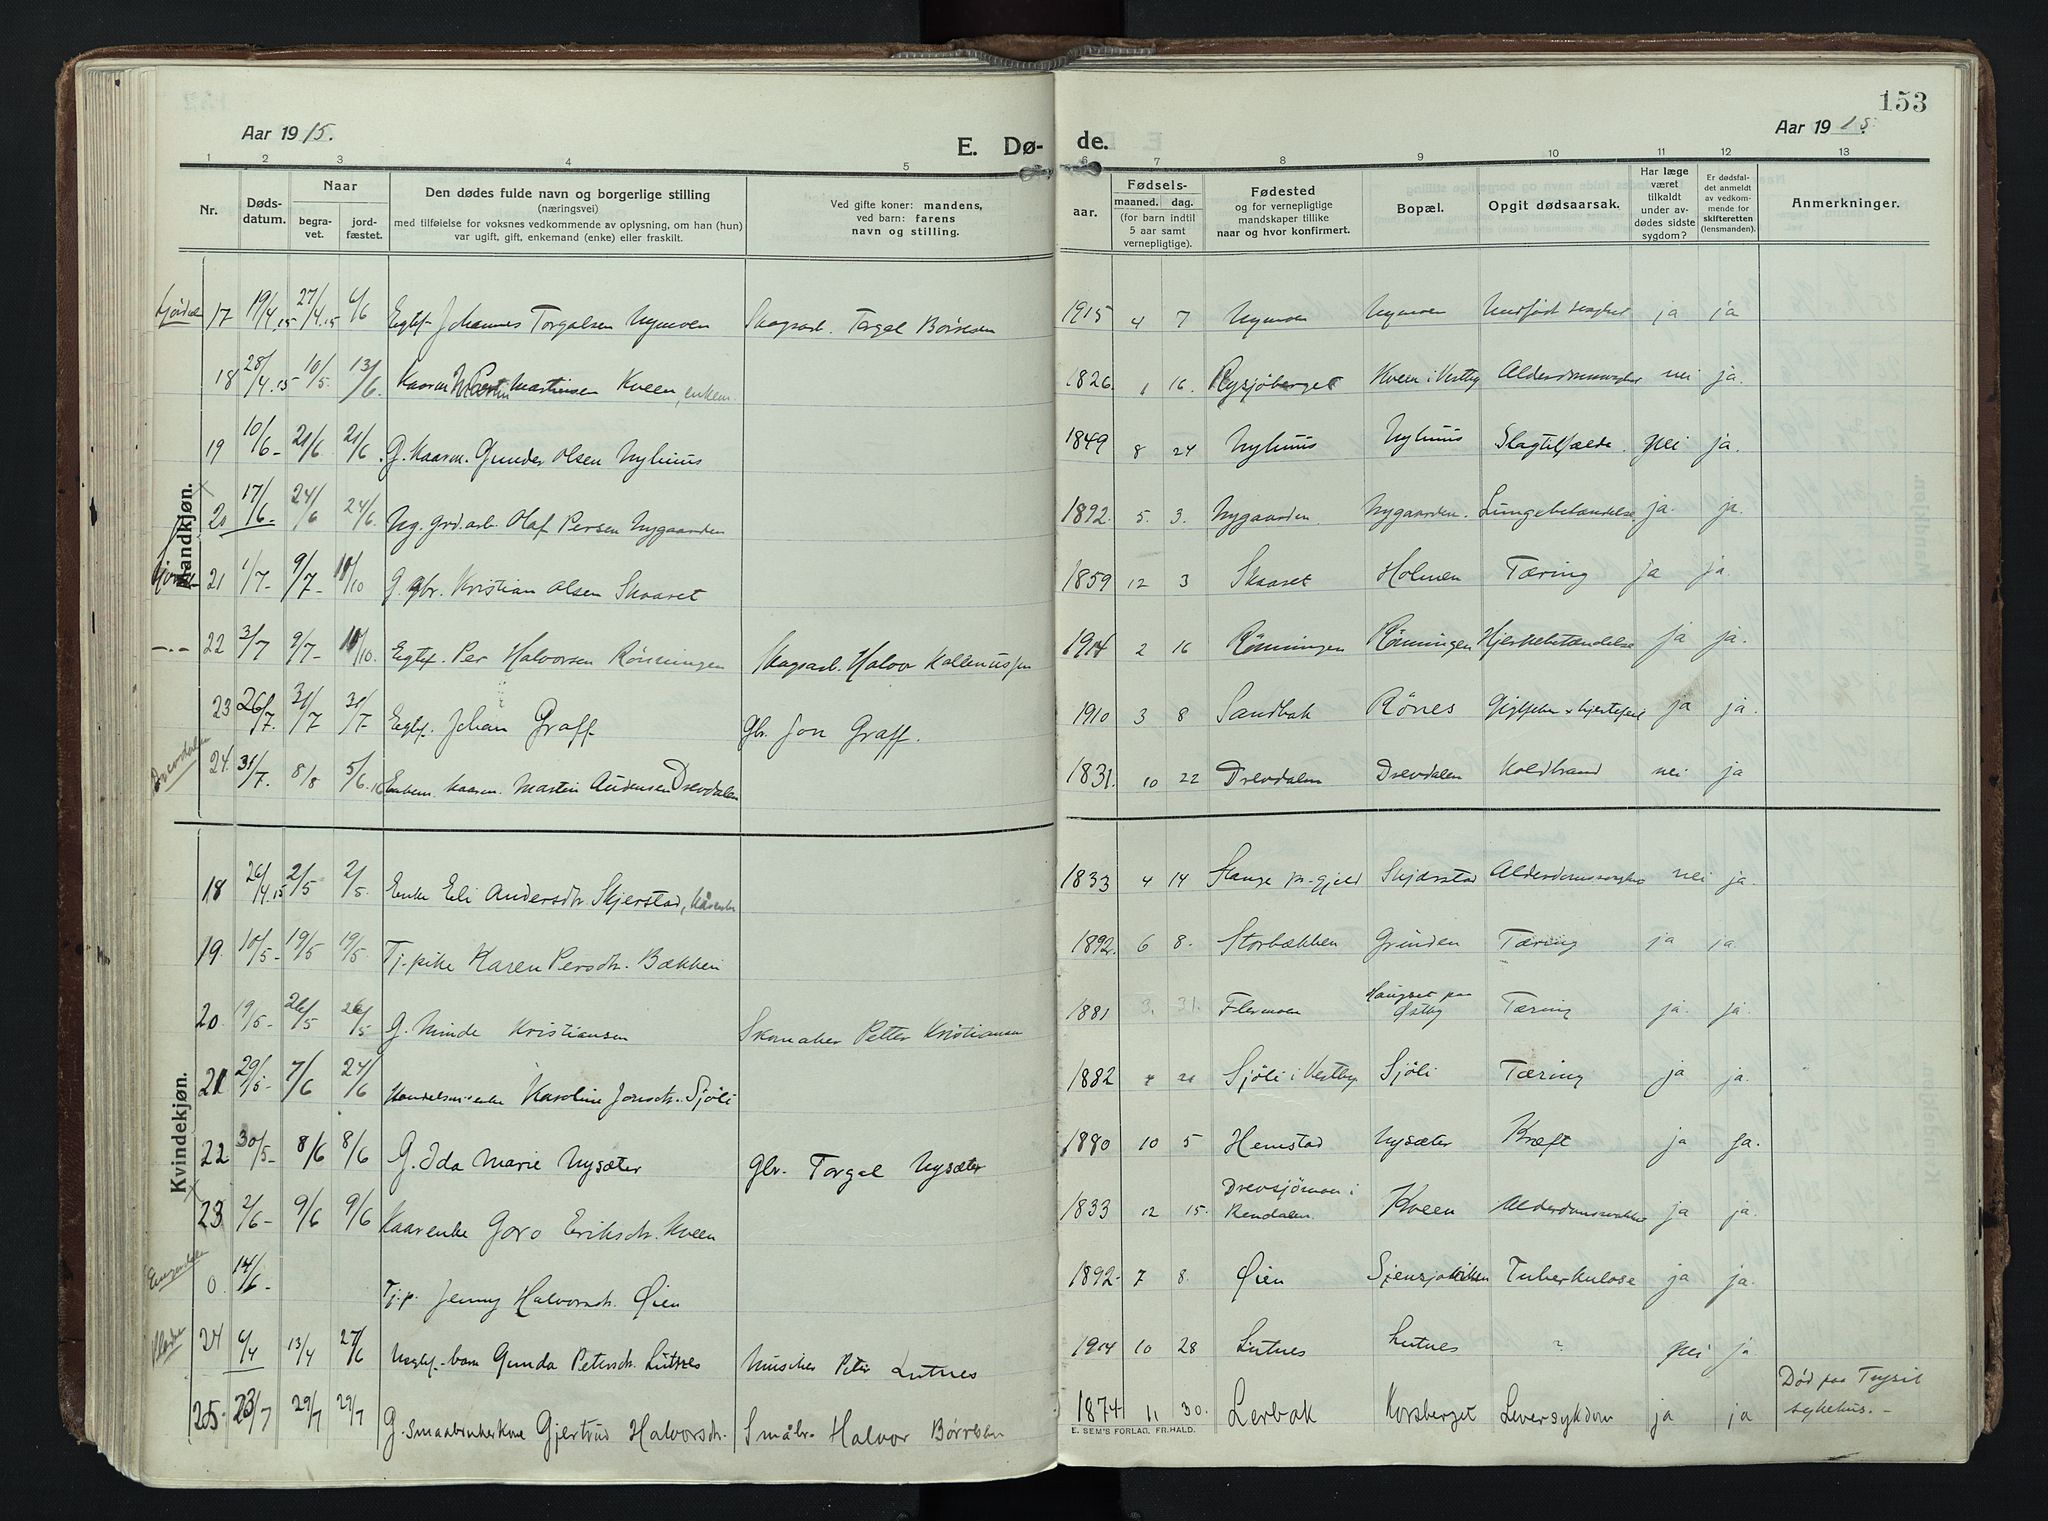 153
Aar 1915.
E. Dø-
de.
Aar 1915.
1 2 3 4 5 6 7 8 9 10 11 12 13
Nr.
Døds-
datum.
Naar
begra-
vet.
jord-
fæstet.
Den dødes fulde navn og borgerlige stilling
(næringsvei)
med tilføielse for voksnes vedkommende av oplysning, om han (hun)
var ugift, gift, enkemand (enke) eller fraskilt.
Ved gifte koner: mandens,
ved barn: farens
navn og stilling.
aar.
Fødsels-
maaned. dag.
(for barn indtil
5 aar samt
vernepligtige).
Fødested
og for vernepligtige
mandskaper tillike
naar og hvor konfirmert.
Bopæl.
Opgit dødsaarsak.
Har læge
været
tilkaldt
under av-
dødes sidste
sygdom?
Er dødsfal-
det anmeldt
av vedkom-
mende for
skifteretten
(lensmanden).
Anmerkninger.
Mandkjøn.
17 19/4.15 27/4.15 6/6 Egtef. Johannes Torgalsen Nymoen Skogsarb. Torgal Børresen 1915 4 7 Nymoen Nymoen Medfødt ja ja
18 28/4.15 10/5 13/6. Kaarm. Martinsen Kveen, enkem. 1826 1 16. Rysjøberget Kveen i Vestby Alderdomssvaghet nei ja.
19 10/6- 21/6 21/6 G. Kaarm. Gunder Olsen Nyhuus 1849 8 24 Nyhuus Nyhuus Slagtilfælde. nei ja.
20 17/6- 24/6 24/6. Ug. grd.arb. Olaf Persen Nygaarden 1892. 5. 3. Nygaarden. Nygaarden. Lungebetændelse ja. ja.
21 1/7- 9/7- 10/10 G. gbr. Kristian Olsen Skaaret 1859 12 3 Skaaret Holmen Tæring ja ja.
-.- 22 3/7 9/7- 10/10. Egtef. Per Halvorsen Rønningen Skogsarb. Halvor 1914 2 16 Rønningen Rønningen Hjernebetændelse ja ja.
23 26/7. 31/7 31/7 Egtef. Johan Graff Gbr. Jon Graff. 1910 3 8 Sandbak Rønes Gigtfeber + hjertefeil ja ja.
Drevdalen 24. 31/7. 8/8 5/6.16 Enkem. kaarm. Martin Audensen Drevdalen 1831. 10 22 Drevdalen Drevdalen Koldbrand nei ja
Kvindekjøn.
18 26/4.15 2/5 2/5. Enke Eli Andersdtr. Skjerstad, 1833 4 14 Stange pr.gjeld Skjærstad Alderdomssvaghet nei ja.
19. 10/5- 19/5 19/5. Tj.pike Karen Persdtr. Bækken 1892. 6 8. Storbækken Grinden Tæring ja ja.
20. 19/5- 26/5 26/5 G. Minde Kristiansen Skomaker Petter Kristiansen 1881 3. 31. Flermoen Haugset paa Østby Tæring ja. ja.
21 29/5- 7/6 24/6 Handelsm.enke Karoline Jonsdtr. Sjøli 1882 Sjøli i Vestby Sjøli Tæring ja ja.
22 30/5- 8/6 8/6 G. Ida Marie Nysæter Gbr. Torgal Nysæter 1880 10 5 Hemstad Nysæter Kræft ja ja.
23 2/6- 9/6 9/6 Kaarenke Goro Eriksdtr. Kveen 1833 12 15. Drevsjømoen i Rendalen Kveen Alderdomssvakhet ja ja.
0 14/6- Tj.p. Jenny Halvorsdtr. Øien 1892- 7 8. Øien Tuberkulose ja ja.
24 6/4 13/4 27/6 Uegtef. barn Gunda Petersdtr. Lutnes Musiker Peter Lutnes 1914 10 28 Lutnes Lutnes ? nei ja
25. 23/7 29/7 29/7 G. Smaabrukerkone Gjertrud Halvorsdtr. Småbr. Halvor Børresen 1874 11 30. Lerbak Korsberget Leversykdom ja ja Død paa Trysil sykehus.-
E. SEM'S FORLAG, FR.HALD.